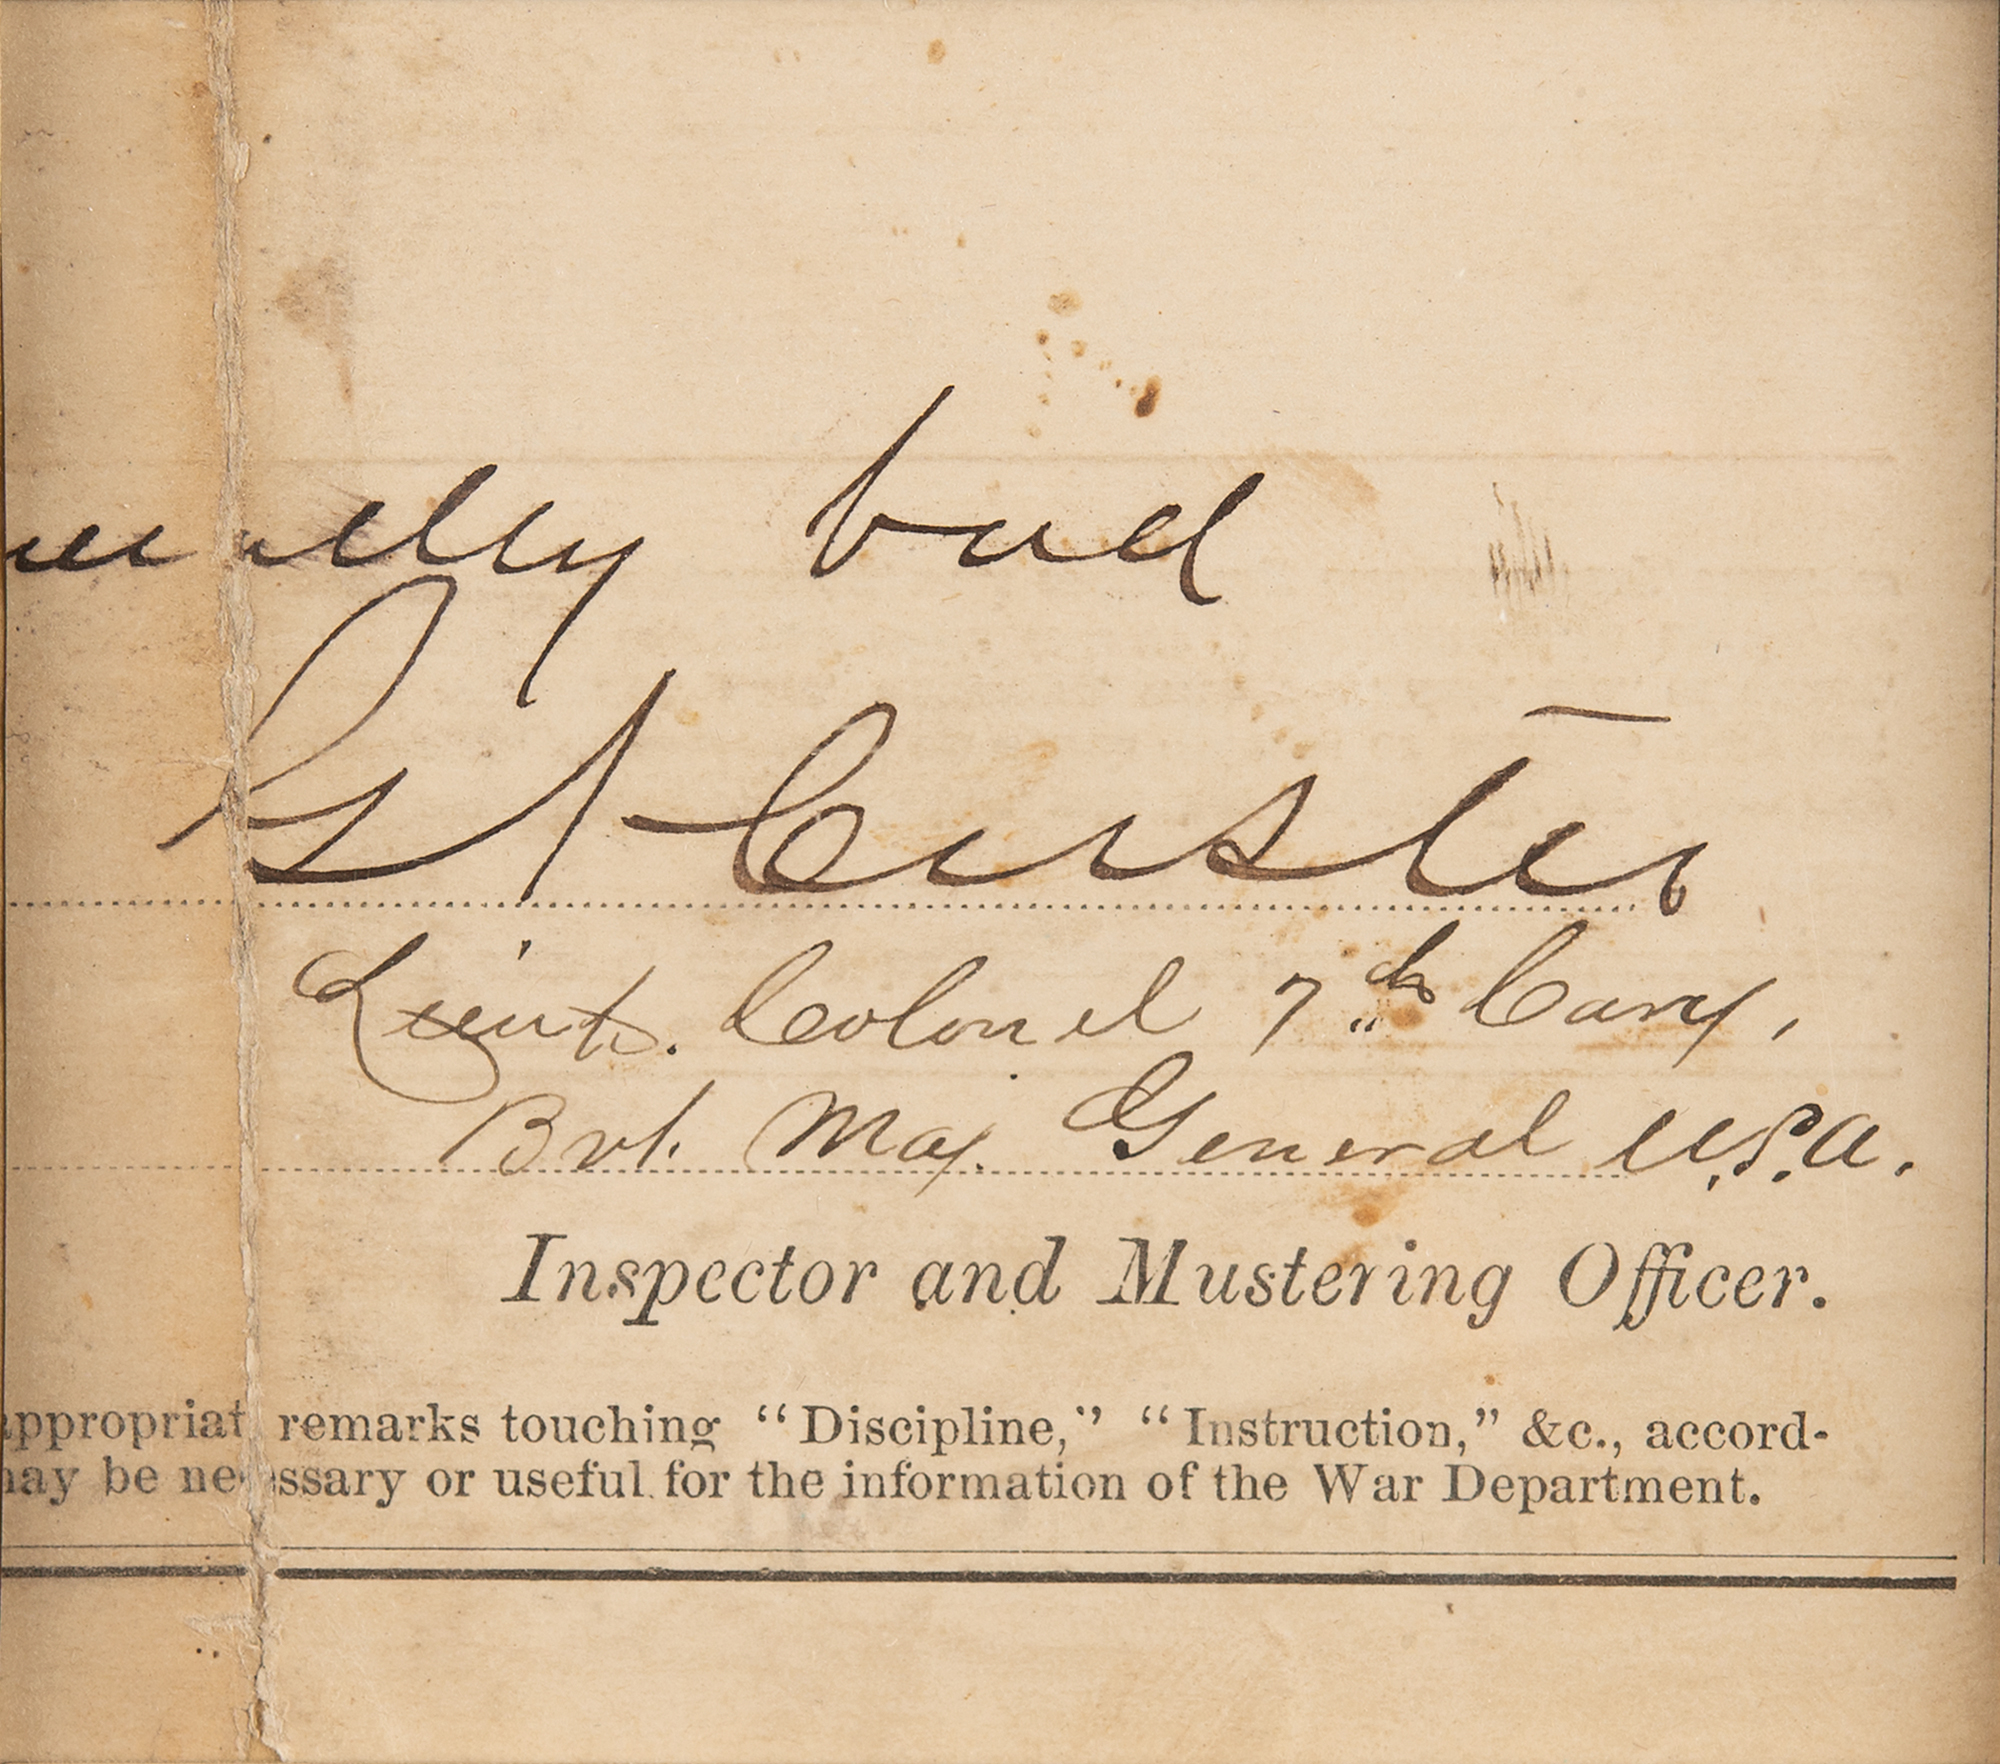 bad
G A Custer
Lieut. Colonel 7th Cavy,
Bvt. Maj. General U.S.A.
Inspector and Mustering Officer.
appropriat remarks touching "Discipline," "Instruction," &c., accord-
may be necessary or useful for the information of the War Department.